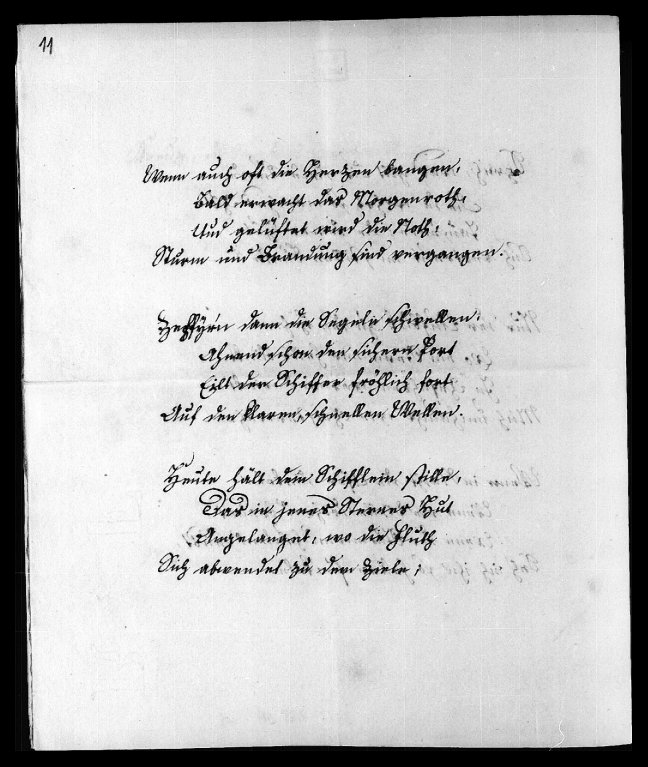 11
Wenn auch oft die Herzen bangen,
Bald erwacht das Morgenroth,
Und gelüftet wird die Noth,
Sturm und Brandung sind vergangen.
Zephyr'n dann die Segeln schwellen;
Ahnend schon den sichern Port
Eilt der Schiffer fröhlich fort
Auf den klaren, schnellen Wellen.
Heute hält dem Schifflein stille,
Das in jenes Sternes Hut
Angelanget, wo die Fluth
Sich abwendet zu dem Ziele;